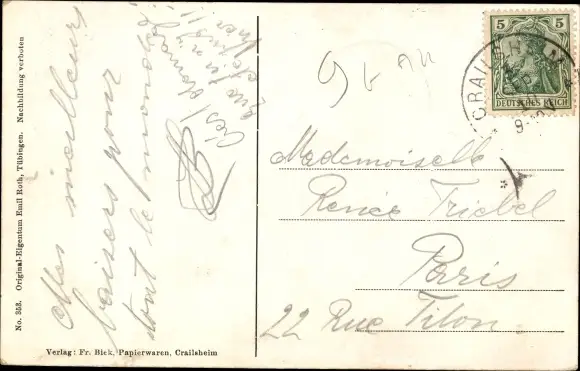 No. 353. Original-Eigentum Emil Roth, Tübingen. Nachbildung verboten
Mes meilleurs
baisers pour
tout le monde
C'est
Verlag: Fr. Bick, Papierwaren, Crailsheim
5 5
DEUTSCHES REICH
CRAILSHEIM
Mademoiselle
Renée Triebel
Paris
22 Rue Tilon